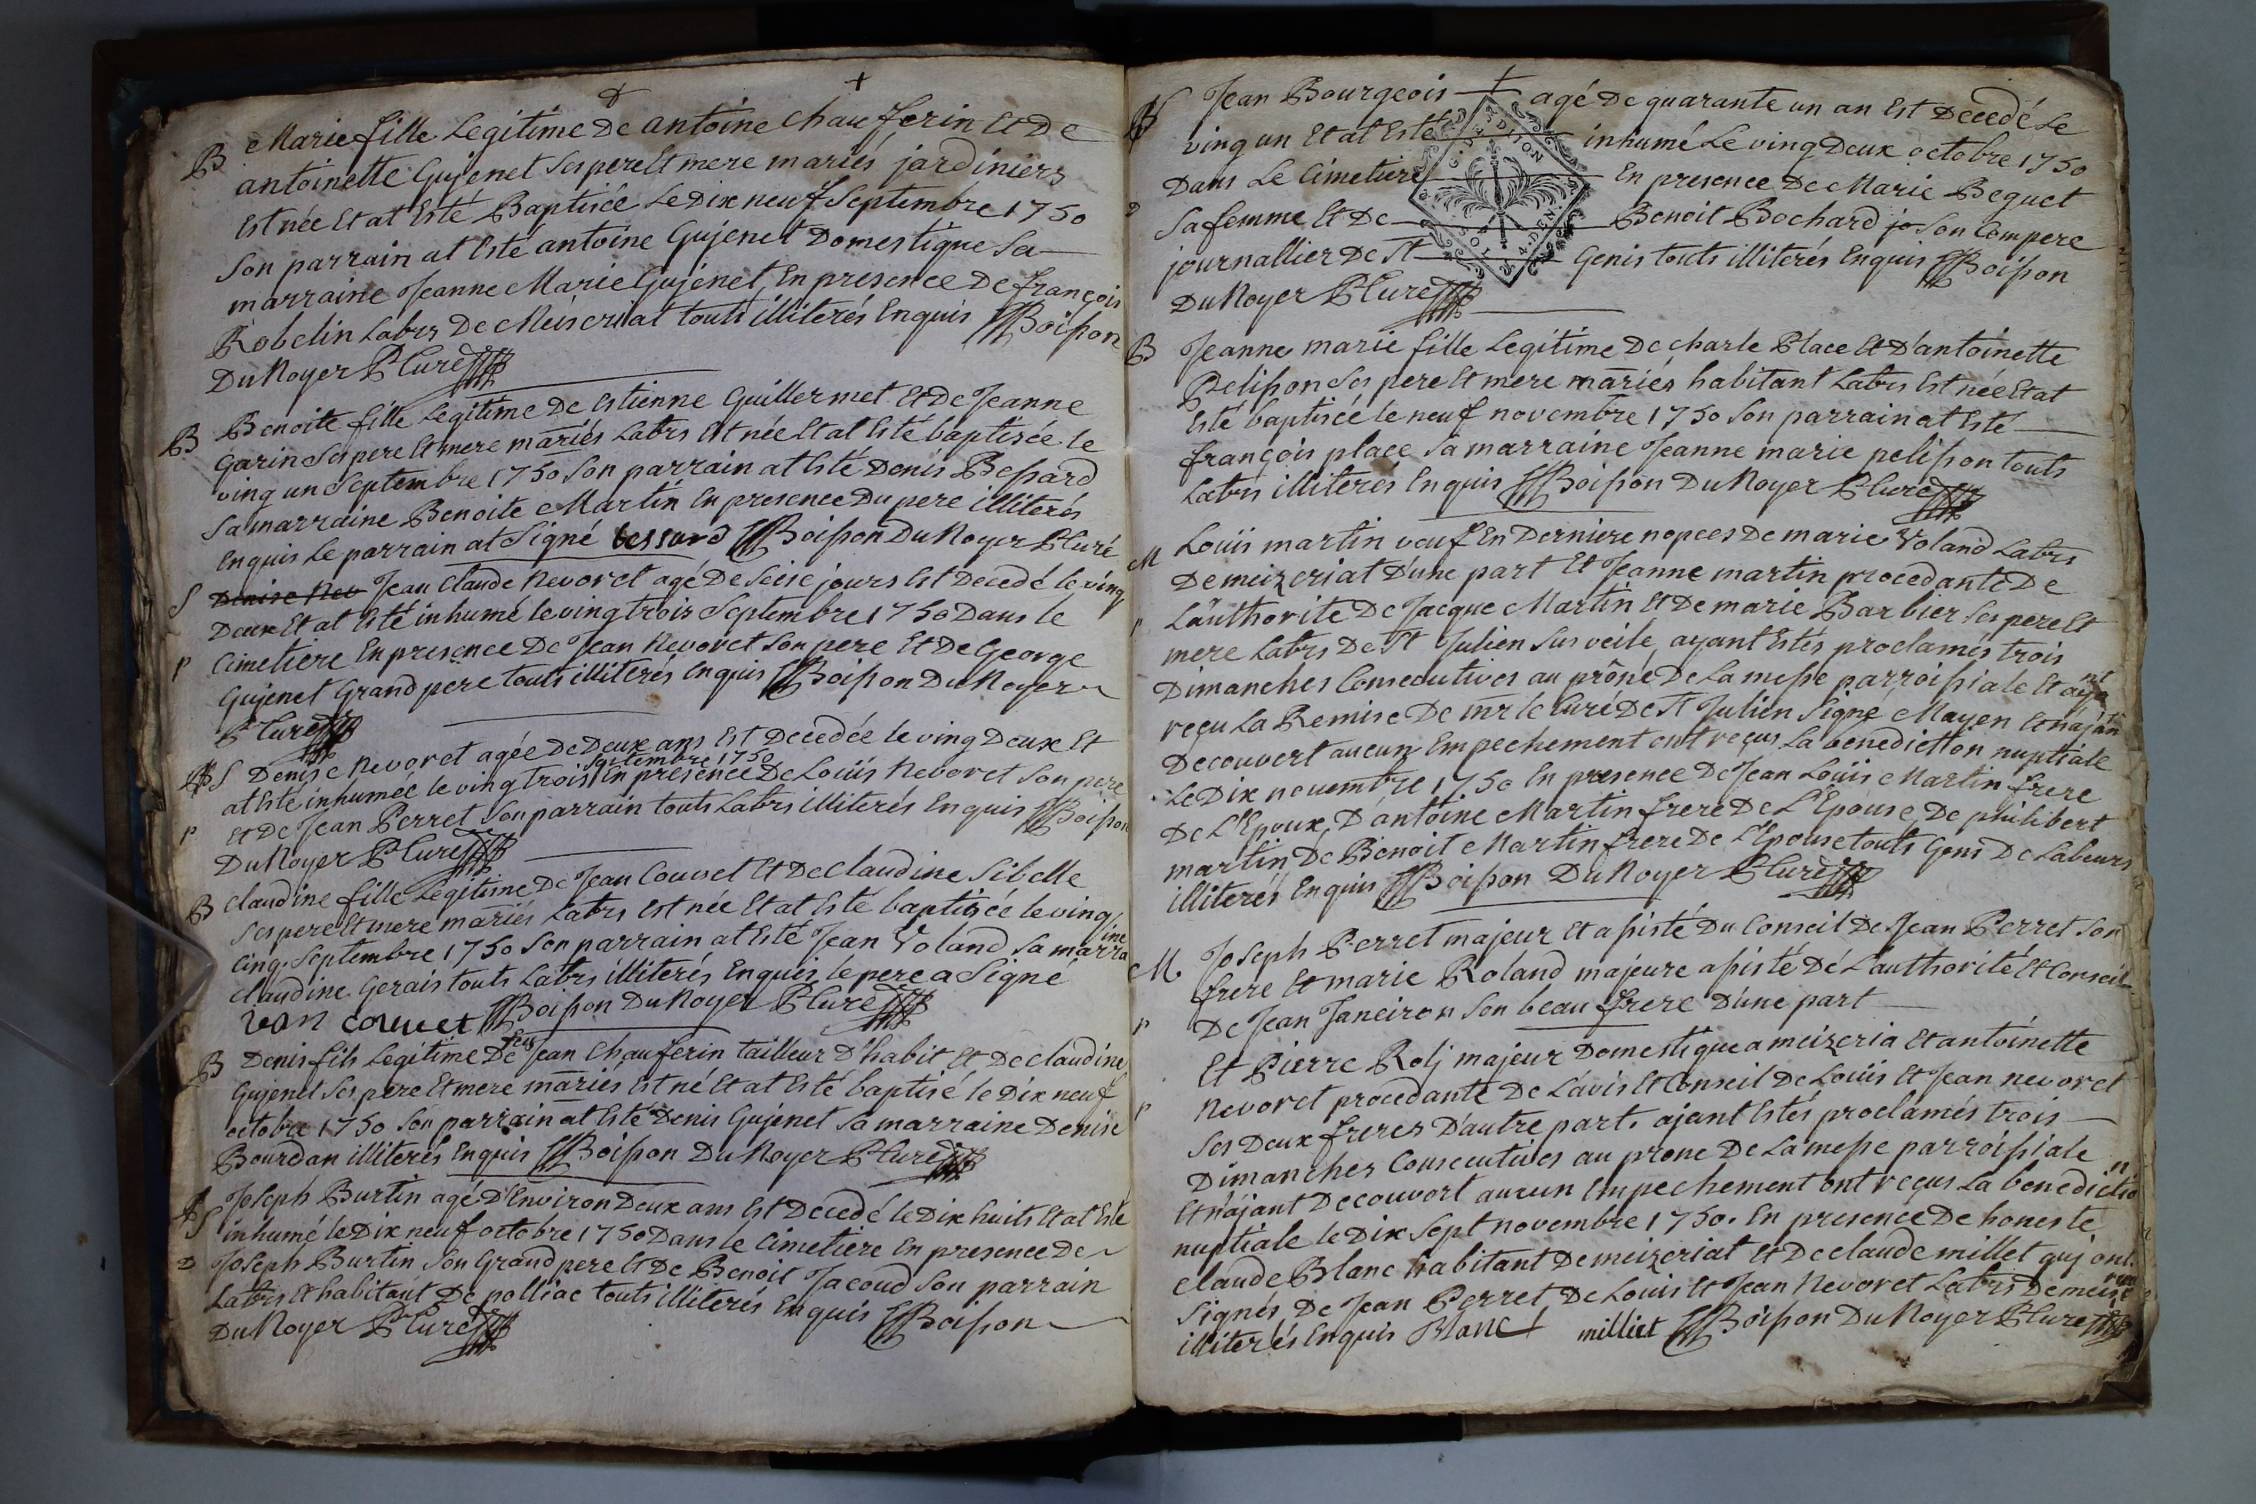 +
B Marie fille Legitime De antoine chauferin Et De
antoinette Gujenet Ses pere Et mere mariés jardiniers
Est née Et at Esté Baptisée Le Dix neuf Septembre 1750
Son parrain at Esté antoine Gujenet Domestique Sa
marraine Jeanne Marie Gujenet, En presence De françois
Robelin Labrs De Meiseriat touts illiterés Enquis Boisson
Du Noyer P Curé
B Benoite fille Legitime De Estienne Guillermet Et De Jeanne
Garin Ses pere Et mere mariés Labrs Est née Et at Esté baptisée le
ving un Septembre 1750 Son parrain at Esté Denis Bessard
Sa marraine Benoite Martin En presence Du pere illiterés
Enquis Le parrain at Signé bessard Boisson Du Noyer P Curé
S Denise Nev Jean Claude Nevoret agé De Seise jours Est Decedé le ving
Deux Et at Esté inhumé le ving trois Septembre 1750 Dans le
p Cimetiere En presence De Jean Nevoret Son pere Et De George
Gujenet Grand pere touts illiterés Enquis Boisson Du Noyer
P Curé
S Denise Nevoret agée De Deux ans Est Decedée le ving Deux Et
Septembre 1750
at Esté inhumée le ving trois En presence De Loüis Nevoret Son pere
p Et De Jean Perret Son parrain touts Labrs illiterés Enquis Boisson
Du Noyer P Curé
B Claudine fille Legitime De Jean Couvet Et De Claudine Sibelle
Ses pere Et mere mariés Labrs Est née Et at Esté baptisée le ving
Cinq Septembre 1750 Son parrain at Esté Jean Voland Sa marraine
Claudine Gerais touts Labrs illiterés Enquis, le pere a Signé
ian couvet Boisson Du Noyer P Curé
feu
B Denis fils Legitime De Jean Chauferin tailleur D'habit Et De Claudine
Gujenet Ses pere Et mere mariés Est né Et at Esté baptisé le Dix neuf
octobre 1750 Son parrain at Esté Denis Gujenet Sa marraine Denise
Bourdan illiterés Enquis Boisson Du Noyer P Curé
S Joseph Burtin agé D'Environ Deux ans Est Decedé le Dix huits Et at Esté
inhumé le Dix neuf octobre 1750 Dans le Cimetiere En presence De
D Joseph Burtin Son Grand pere Et De Benoit Jacoud Son parrain
Labrs Et habitant De polliac touts illiterés Enquis Boisson
Du Noyer P Curé
Jean Bourgeois agé De quarante un an Est Decedé Le
ving un Et at Esté inhumé Le ving Deux octobre 1750
Dans Le Cimetiere En presence De Marie Beguet
Sa femme Et De Benoit Bochard jo Son Compere
journallier De St Genis touts illiterés Enquis Boisson
Du Noyer P Curé
G. DE DIJON
SOL 4. DEN.
B Jeanne marie fille Legitime De charle Place Et D'antoinette
Pelisson Ses pere Et mere mariés habitant Labrs Est née Et at
Esté baptisée le neuf novembre 1750 Son parrain at Esté
françois place Sa marraine Jeanne marie pelisson touts
Labrs illiterés Enquis Boisson Du Noyer P Curé
M Loüis martin veuf En Derniere nopces De marie Voland Labrs
De meizeriat D'une part Et Jeanne martin procedante De
L'authorite De Jacque Martin Et De marie Barbier Ses pere Et
mere Labrs De St Julien Sus veile, ayant Estés proclamés trois
Dimanches Consecutives au prône De La messe parroissiale Et ayant
reçu La Remise De mr le Curé De St Julien Signé Mayen Et n'ajant
Decouvert aucun Empechement ont reçus La benediction nuptiale
Le Dix novembre 1750 En presence De Jean Loüis Martin frere
De L'Epoux, D'antoine Martin frere De L'Epouse, De philibert
martin De Benoit Martin frere De L'Epouse touts Gens De Labeurs
illiterés Enquis Boisson Du Noyer P Curé
M Joseph Perret majeur Et assisté Du Conseil De Jean Perret Son
frere Et marie Roland majeure assisté De L'authorité Et Conseil
p De Jean Janeiron Son beau frere D'une part
Et Pierre Rolj majeur Domestique a meizeria Et antoinette
p Nevoret procedante De L'avis Et Conseil De Loüis Et Jean nevoret
Ses Deux freres D'autre part. ajant Estés proclamés trois
Dimanches Consecutives au prone De La messe parroissiale
Et n'ajant Decouvert aucun Empechement ont reçus La benediction
nuptiale le Dix Sept novembre 1750. En presence De honeste
Claude Blanc habitant De meizeriat Et De claude millet quj ont
Signés De Jean Perret De Louis Et Jean Nevoret Labrs De
illiterés Enquis Blanc milliet Boisson Du Noyer P Curé